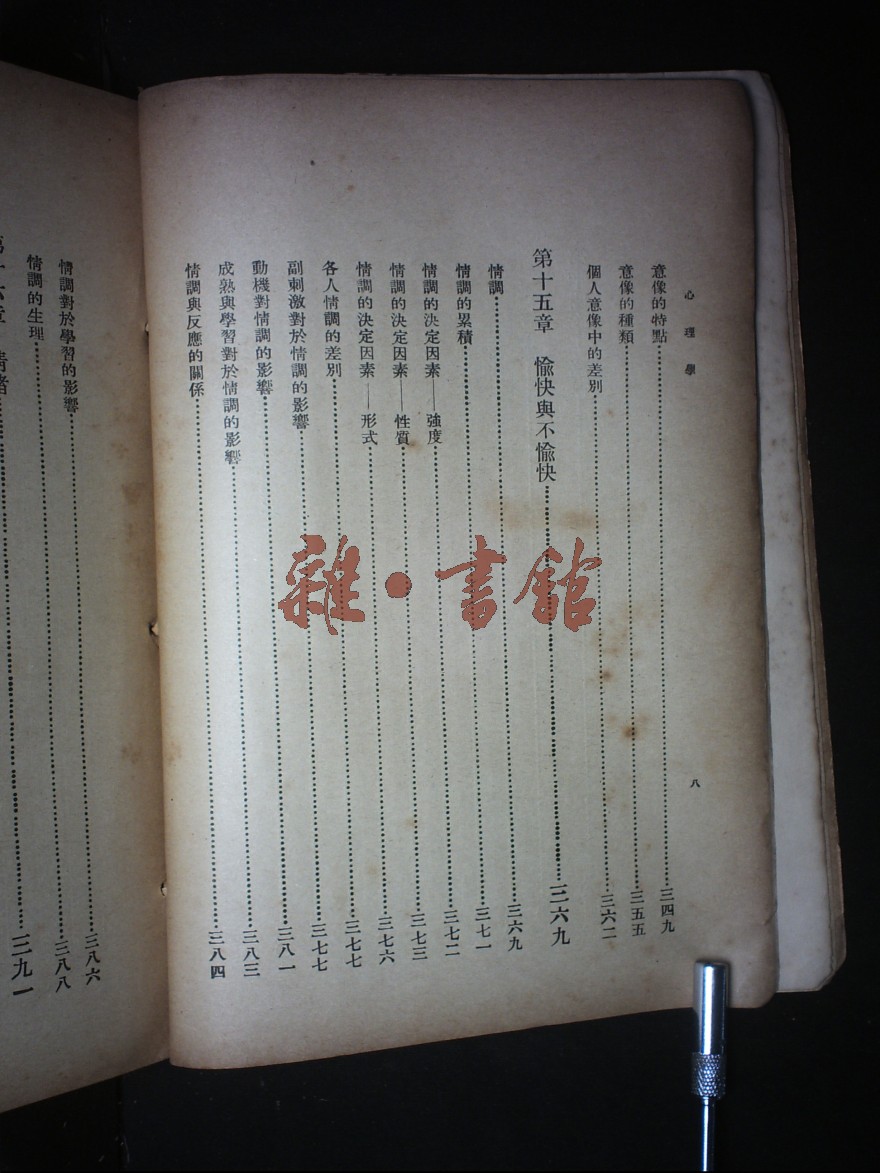 心理學
八
意像的特點⋯⋯三四九
意像的種類⋯⋯三五五
個人意像中的差別⋯⋯三六二
第十五章 愉快與不愉快⋯⋯三六九
情調⋯⋯三六九
情調的累積⋯⋯三七一
情調的決定因素——強度⋯⋯三七二
情調的決定因素——性質⋯⋯三七三
情調的決定因素——形式⋯⋯三七六
各人情調的差別⋯⋯三七七
副刺激對於情調的影響⋯⋯三七七
動機對情調的影響⋯⋯三八一
成熟與學習對於情調的影響⋯⋯三八三
情調與反應的關係⋯⋯三八四
情調對於學習的影響⋯⋯三八六
情調的生理⋯⋯三八八
第十六章 情緒⋯⋯三九一
雜·書館